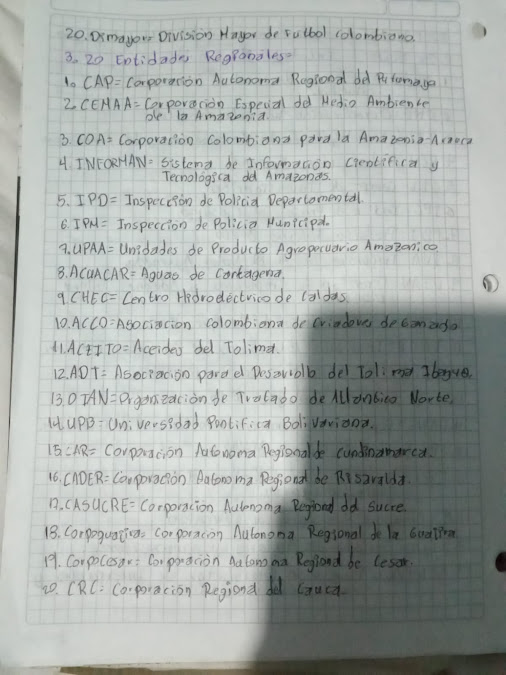 20. Dimayor= División Mayor de Futbol colombiano.
3. 20 Entidades Regionales=
1. CAP= Corporación Autonoma Regional del Putumayo
2. CEMAA= Corporación Especial del Medio Ambiente
de la Amazonia.
3. COA= Corporación Colombiana para la Amazonia-Araca
4. INFORMAN= Sistema de Información Científica y
Tecnológica del Amazonas.
5. IPD= Inspección de Policia Departamental.
6. IPM= Inspección de Policia Municipal.
7. UPAA= Unidades de Producto Agropecuario Amazonico
8. ACUACAR= Aguas de Cartagena.
9. CHEC= Centro Hidroeléctrico de Caldas
10. ACCO= Asociacion Colombiana de Criadores de Ganado
11. ACEITO= Aceides del Tolima.
12. ADT= Asociación para el Desarollo del Tolima Ibague.
13. OTAN= Organización de Tratado de Atlántico Norte.
14. UPB= Universidad Pontifica Bolivariana.
15. CAR= Corporación Autonoma Regional de Cundinamarca.
16. CADER= Corporación Autonoma Regional de Risaralda.
17. CASUCRE= Corporación Autonoma Regional del Sucre.
18. Corpoguajira= Corporación Autonoma Regional de la Guajira
19. Corpocesar= Corporación Autonoma Regional de Cesar.
20. CRC= Corporación Regional del Cauca.